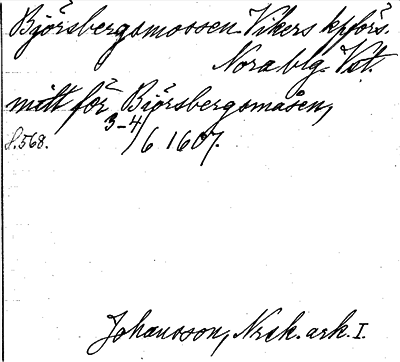 Björsbergsmossen. Vikers kpförs.
Nora blg. Vst.
mitt för Björsbergsmåsen,
f. 568. 3-4/6 1607.
Johansson, Nrsk. ark. I.